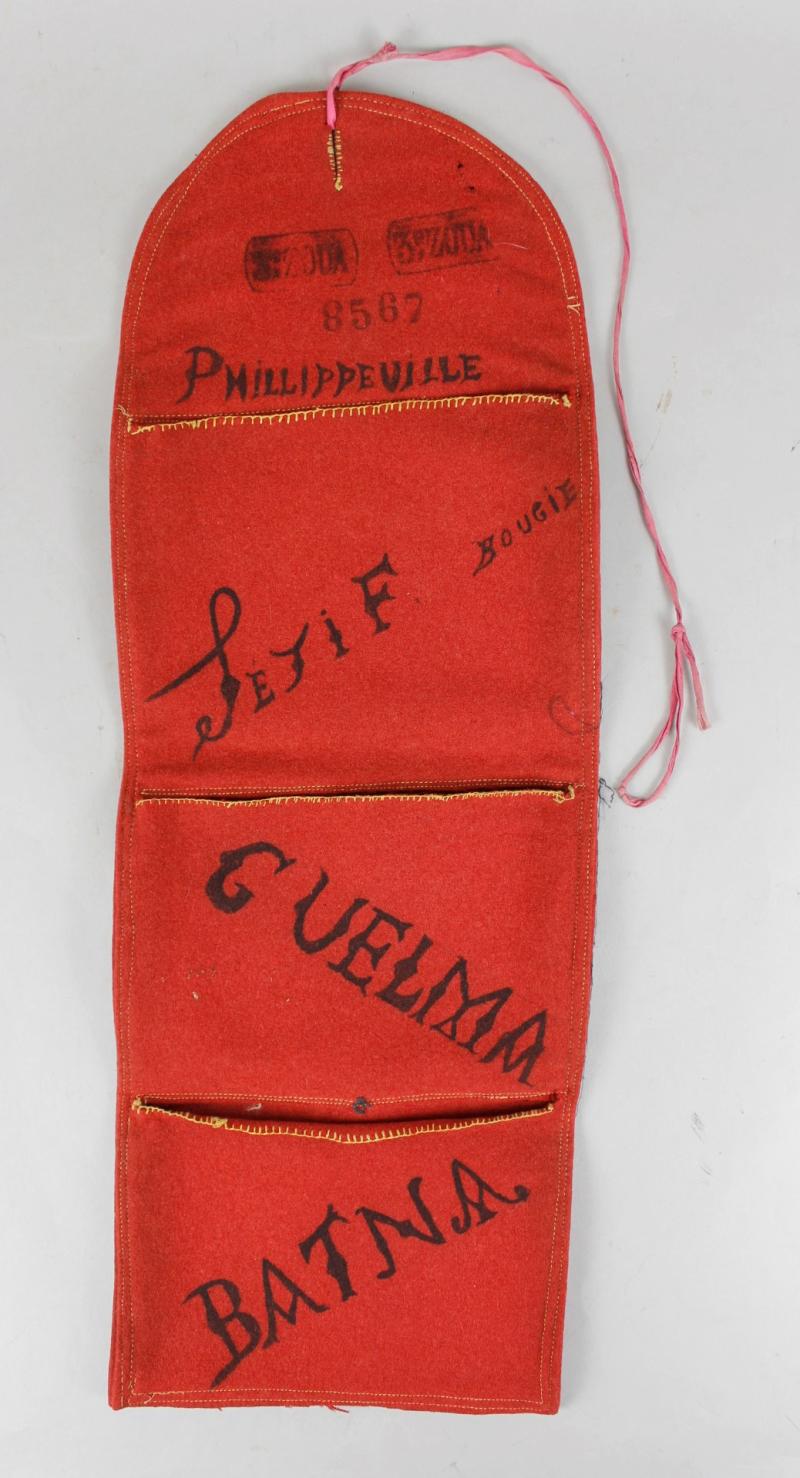 3e ZOUA 3e ZOUA
8567
PHILLIPPEVILLE
BOUGIE
SETIF
GUELMA
BATNA